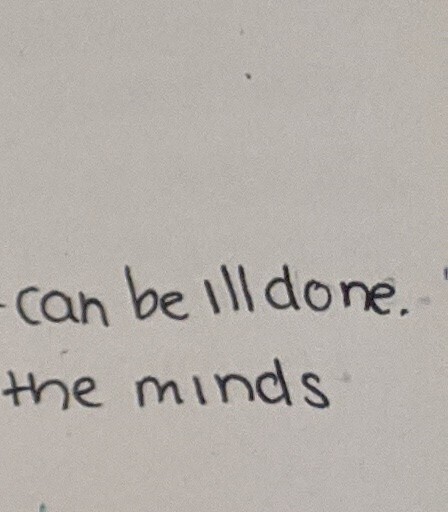 can be ill done.
the minds